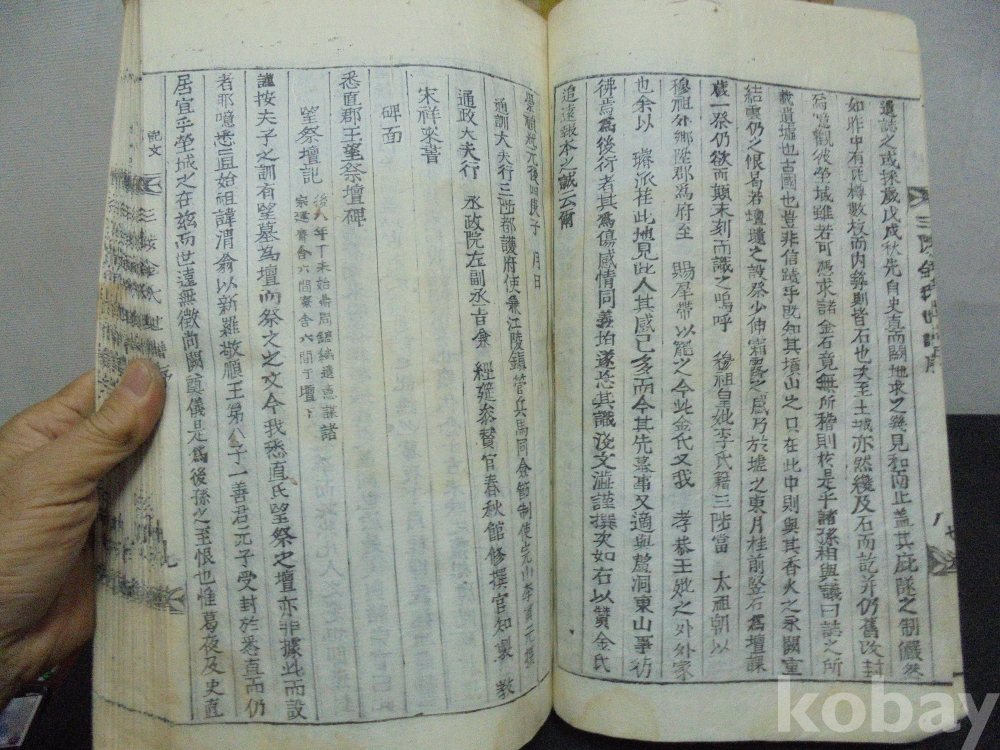 遺誌之或採歲戊戌秋先自史直而闢地求之幾見和而止盖其庇隧之制儼然
如昨中有瓦樽數枚而內旁則皆石也次至土城亦然纔及石而訖并仍舊改封
爲覽觀彼塋域雖若可憑求諸金石竟無所稽則於是乎諸孫相與議曰誌之所
載曺墟也古國也豈非信蹟乎旣知其墳山之只在此中則與其香火之永闕寧
結雲仍之恨曷若壇墠之設祭少伸霜露之感乃於墟之東月桂前竪石爲壇課
歲一祭仍欲而顚末刻而識之嗚呼 穆祖皇妣李氏籍三陟當 太祖朝以
穆祖外鄉陞郡爲府至 賜犀帶以寵之今此金氏又我 孝恭王妣之外外家
也余以 璿派莅此地見此人其感已多而今其先墓事又適與蘆洞東山事彷
彿焉爲後衍者其爲傷感情同義均遂忘其識淺文澁謹撰次如右以贊金氏
追遠報本之誠云爾
崇禎紀元後四庚子 月日
通訓大夫行三陟都護府使兼江陵鎭管兵馬同僉節制使完山李 元 撰
通政大夫行 承政院左副承旨兼 經筵叅贊官春秋館修撰官知製 敎
宋祥來書
碑面
悉直郡王望祭壇碑
望祭壇記 後八年丁未始壽局譜編遺意謀諸
宗建齋舍六間菴舍六間于壇下
謹按夫子之訓有望墓爲壇而祭之之文今我悉直氏望祭之壇亦非據此而設
者耶噫悉直始祖諱渭翁以新羅敬順王第八子一善君元子受封於悉直而仍
居宜乎塋城之在玆而世遠無徵尚闕奠儀是爲後孫之至恨也惟葛夜及史直
記文
三陟金氏世譜序
九